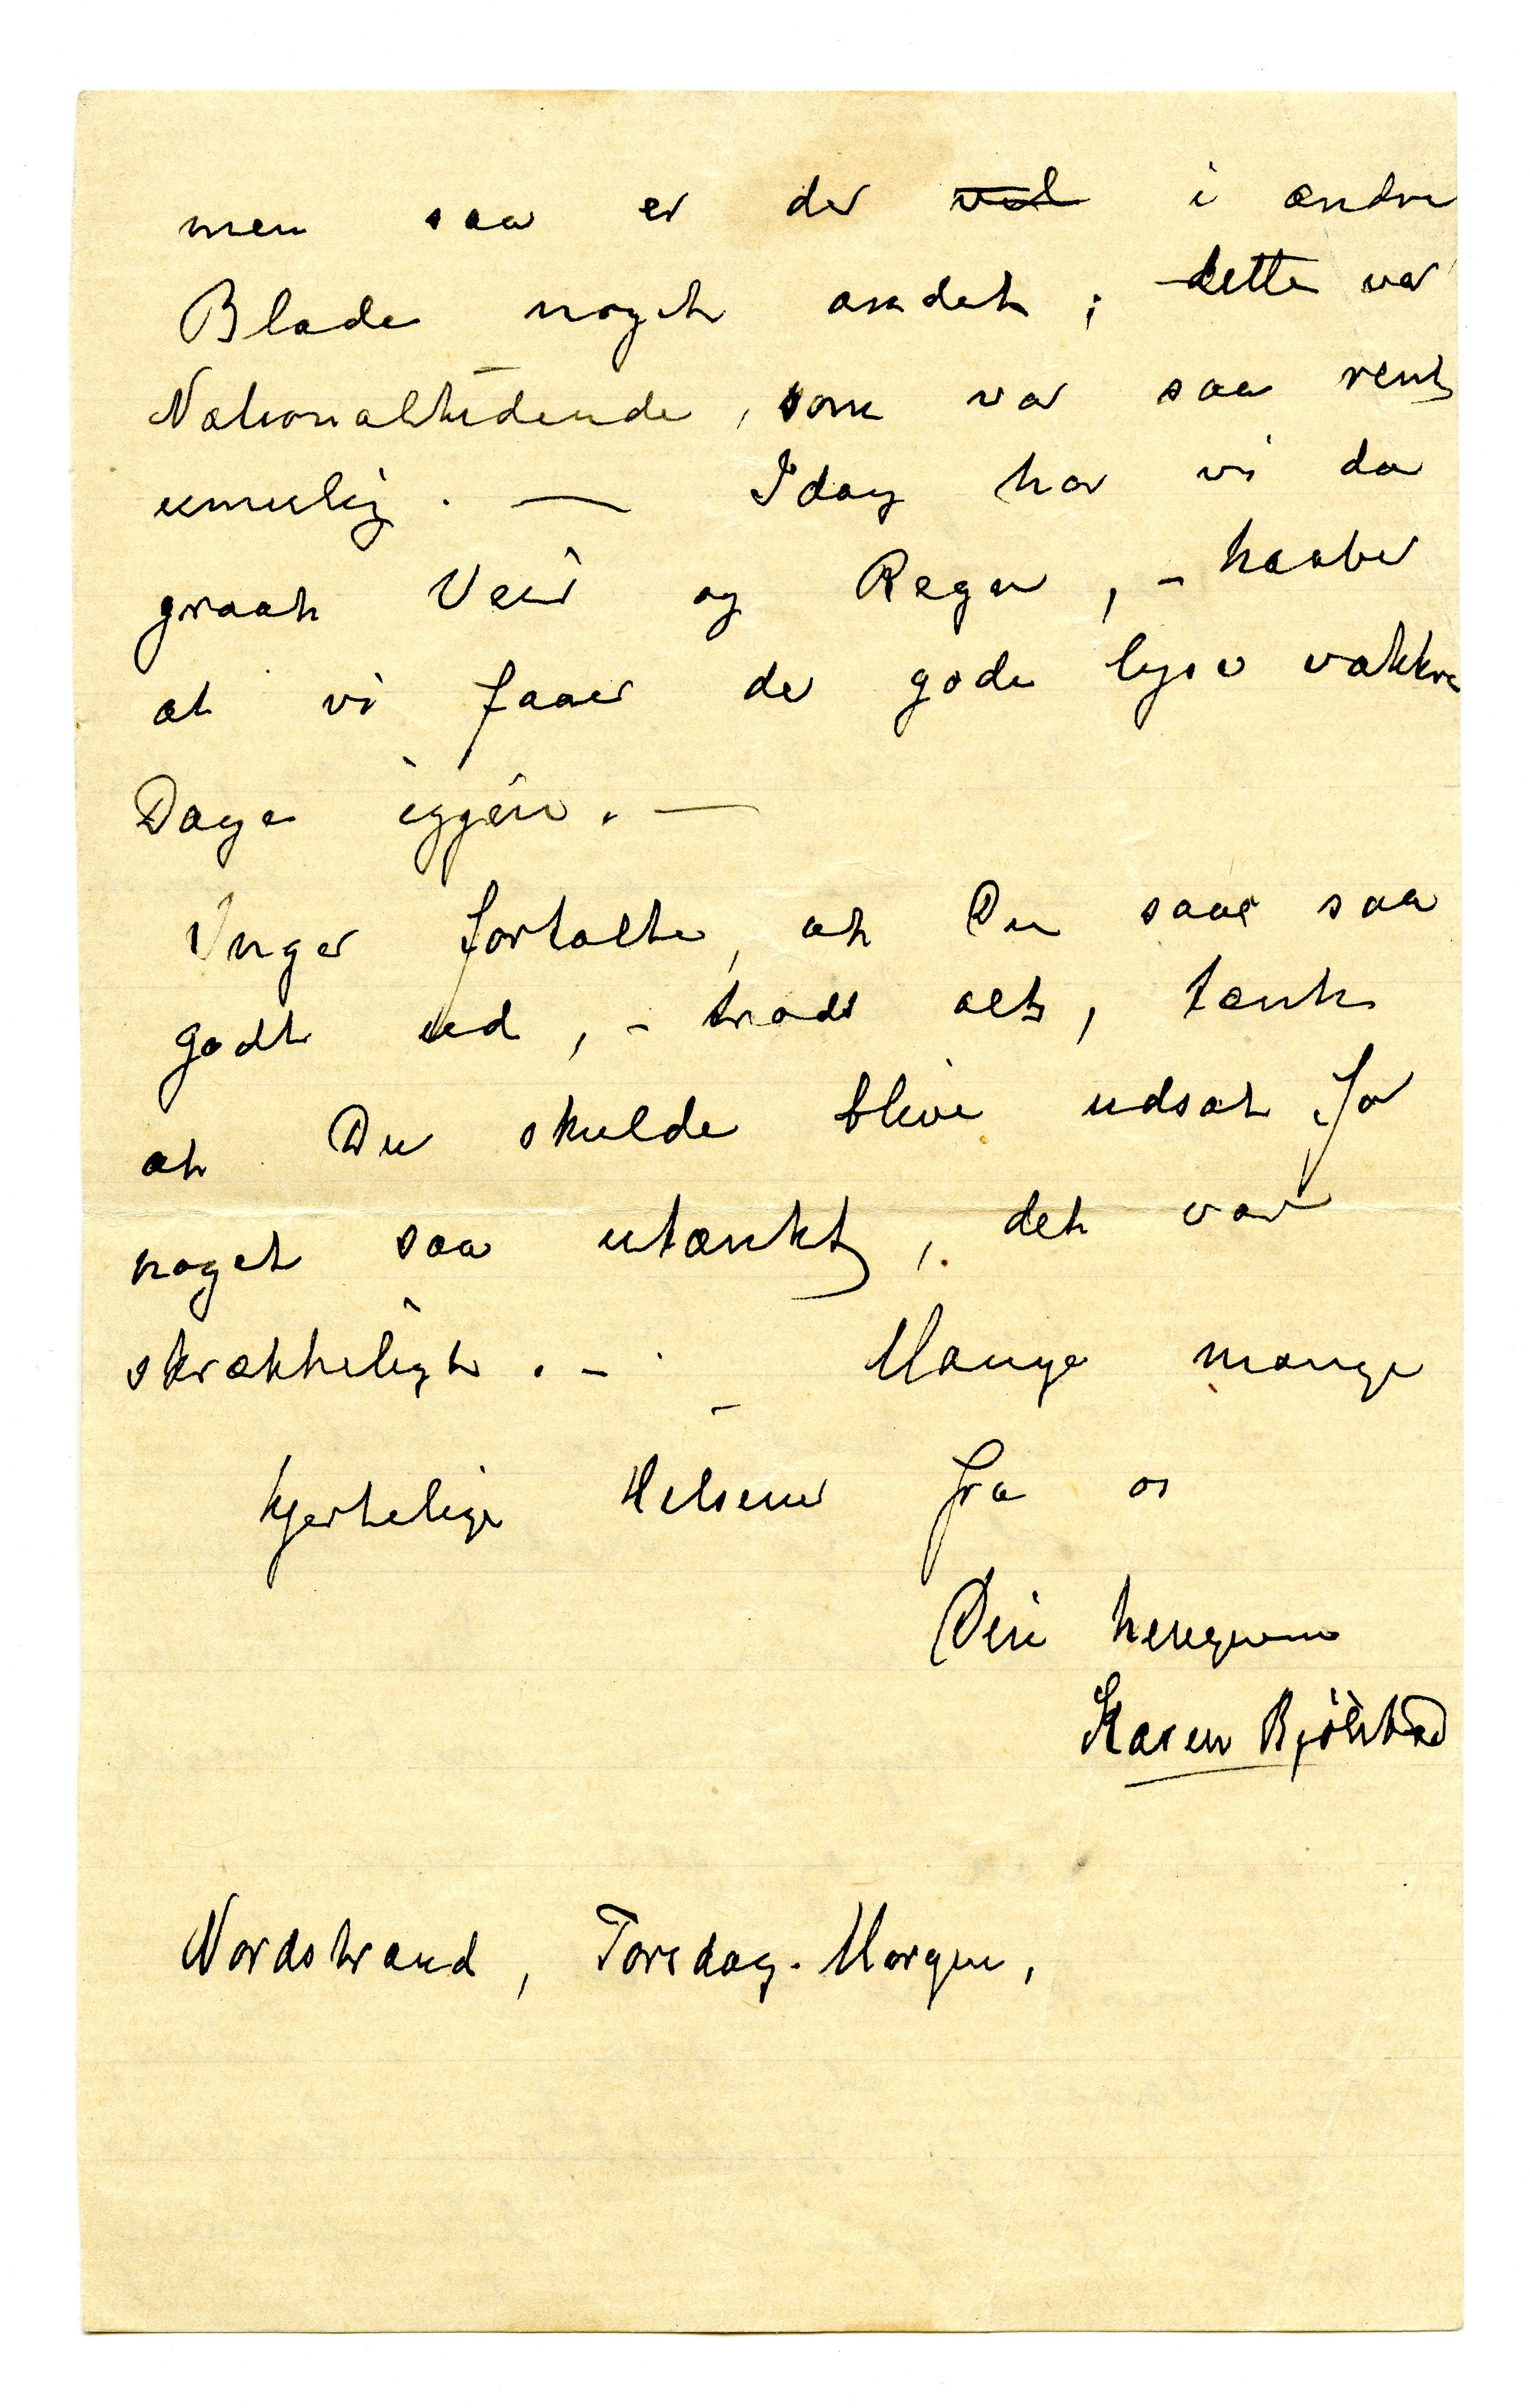 men saa er der vel i andre
Blade noget andet; dette var
Nationaltidende, som var saa rent
umulig. — Idag har vi da
graat Veir og Regn, – haaber
at vi faaer de gode lyse vakkre
Dage iggen. —
Inger fortalte, at Du saae saa
godt ud, – trods alt, tænk
at Du skulde blive udsat for
noget saa utænkt, det var
skrækkeligt. – Mange mange
hjertelige Hilsener fra os
Din hengivne
Karen Bjölstad
Nordstrand, Torsdag-Morgen,